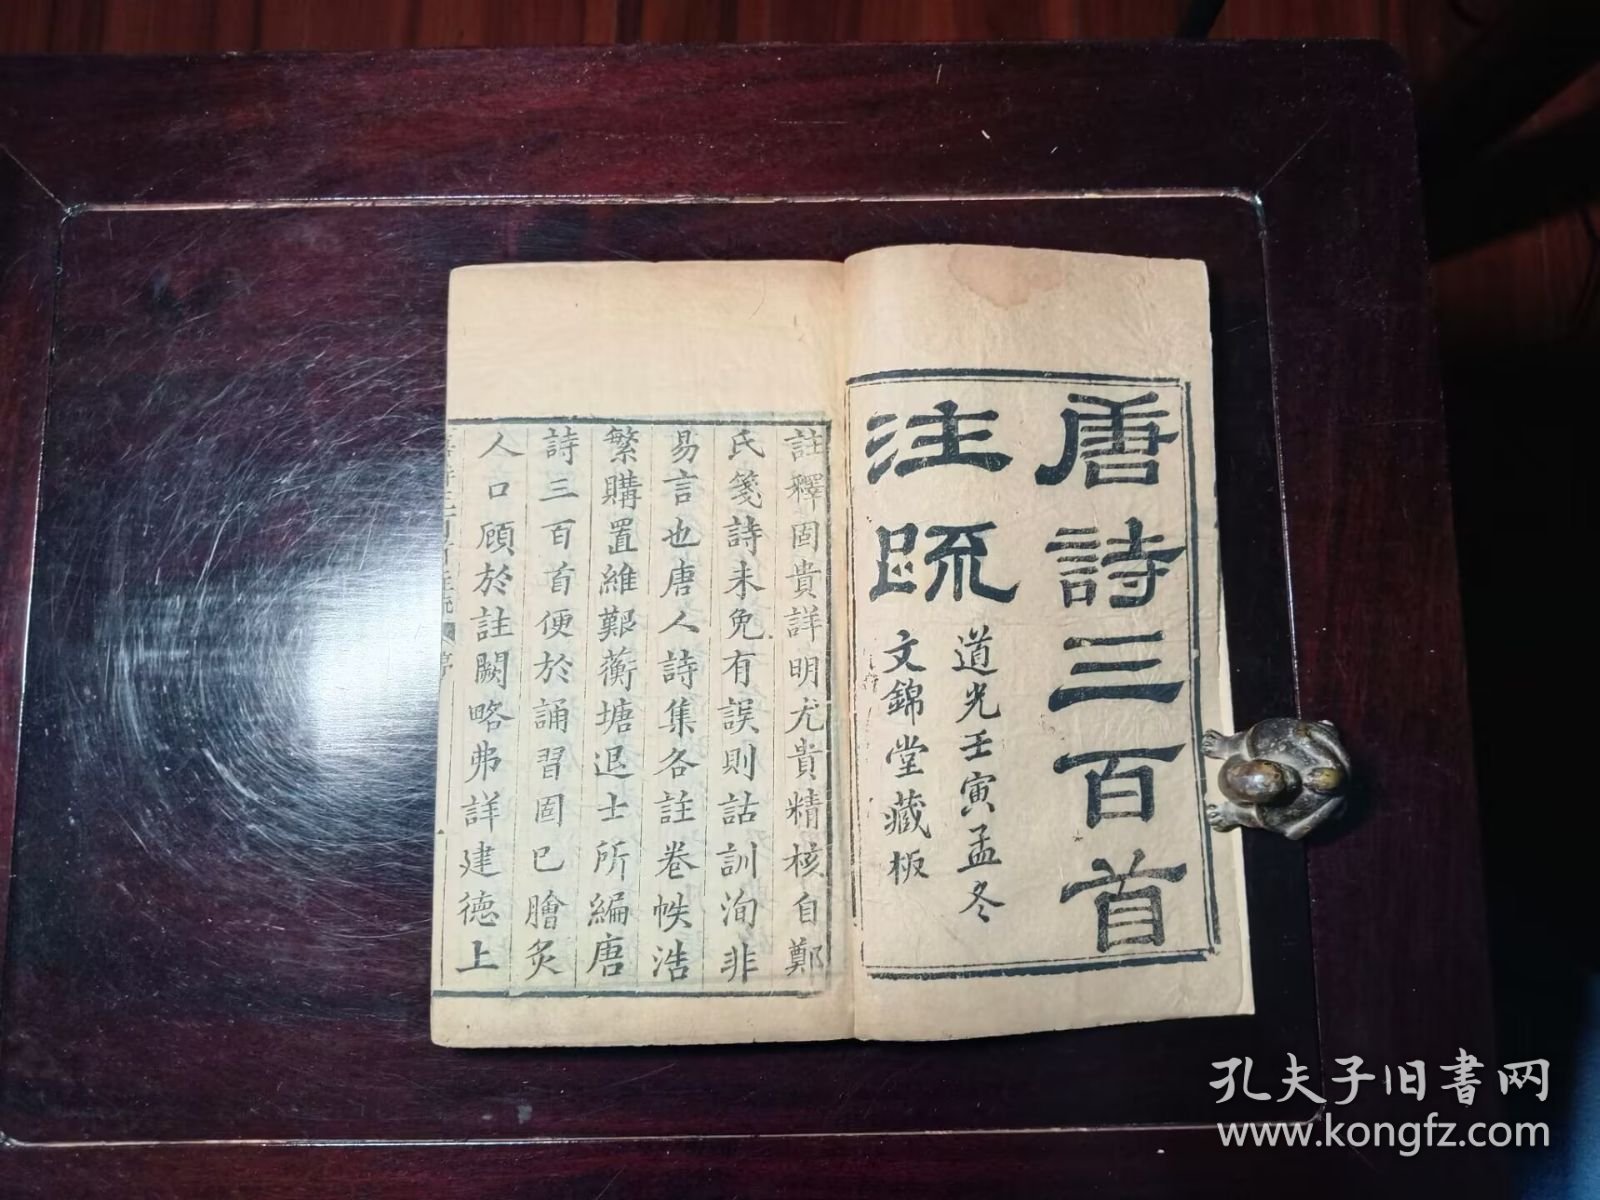 唐詩三百首
注疏
道光壬寅孟冬
文錦堂藏板
註釋固貴詳明尤貴精核自鄭
氏箋詩未免有誤則詁訓洵非
易言也唐人詩集各註卷帙浩
繁購置維艱蘅塘退士所編唐
詩三百首便於誦習固已膾炙
人口顧於註闕略弗詳建德上
孔夫子旧书网
www.kongfz.com